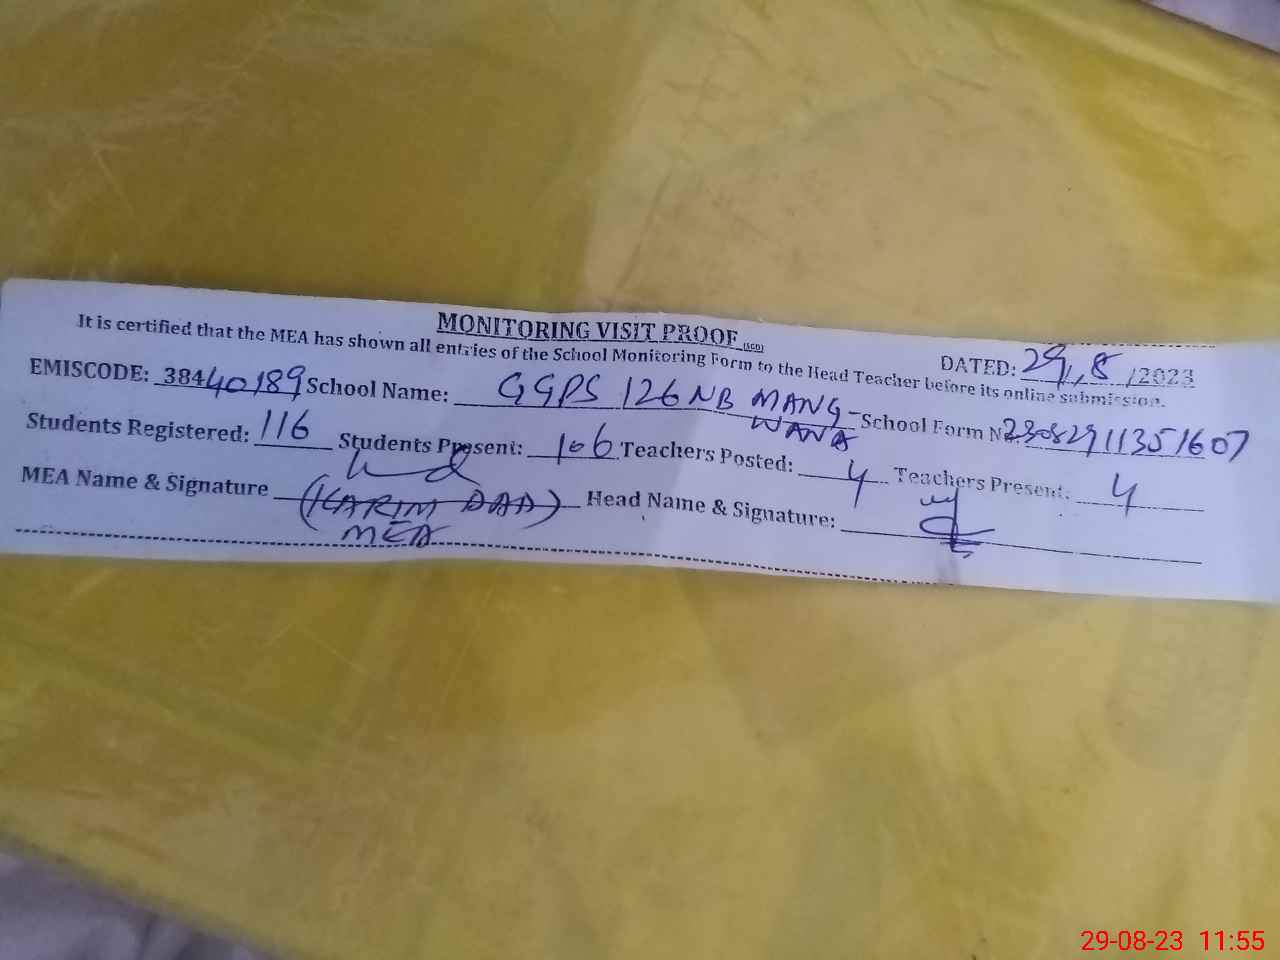 MONITORING VISIT PROOF (SCD)
DATED: 29/8/2023
It is certified that the MEA has shown all entries of the School Monitoring Form to the Head Teacher before its online submission.
EMISCODE: 38440189 School Name: GGPS 126 NB MANG-WANA School Form No 23082911351607
Students Registered: 116 Students Present: 106 Teachers Posted: 4 Teachers Present: 4
MEA Name & Signature (KARIM DAD) Head Name & Signature:
MEA
29-08-23 11:55